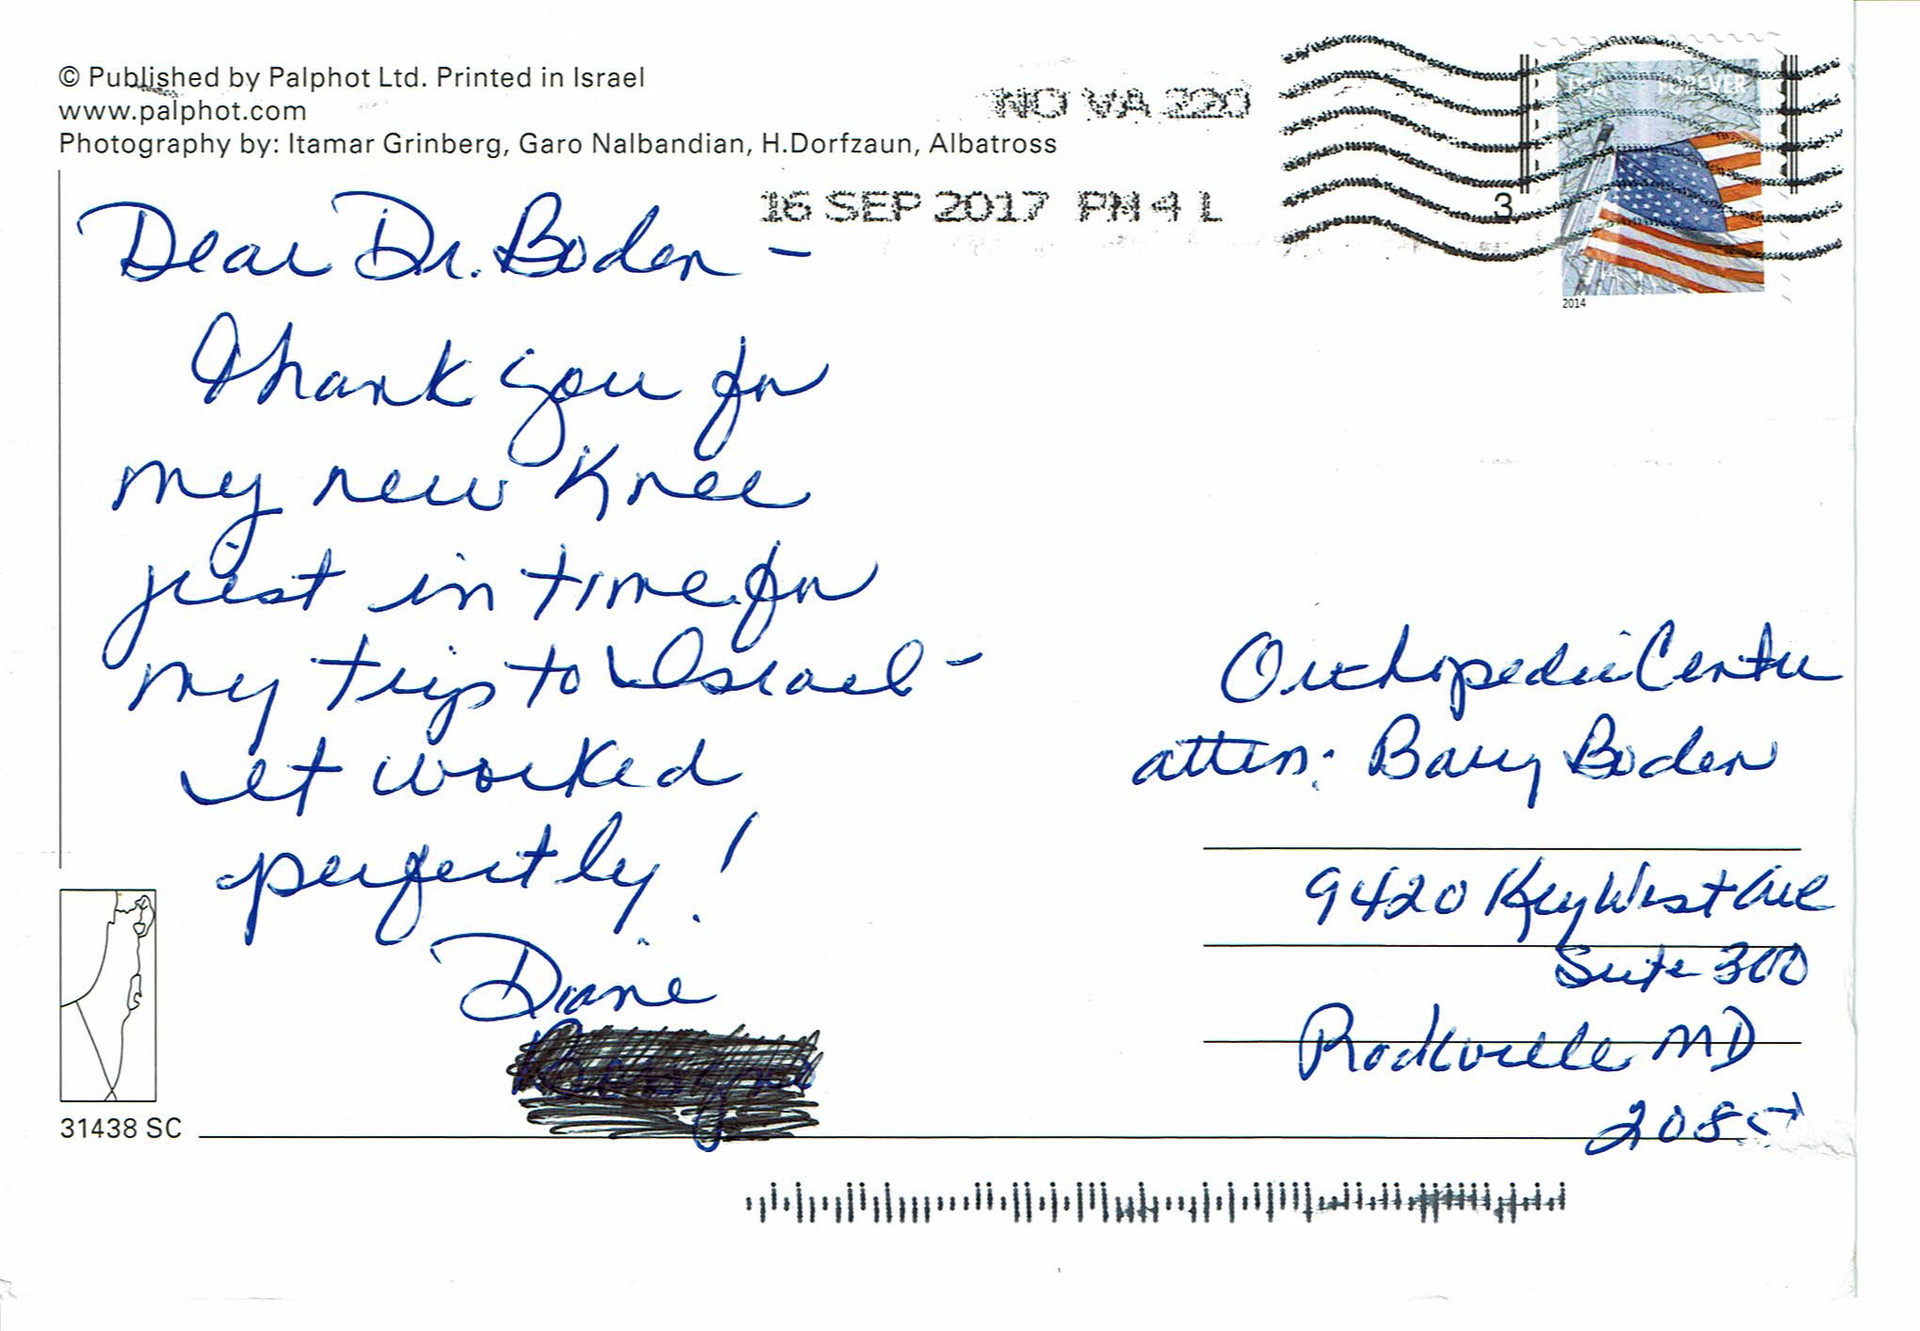 © Published by Palphot Ltd. Printed in Israel
www.palphot.com
Photography by: Itamar Grinberg, Garo Nalbandian, H.Dorfzaun, Albatross
NO VA 220
16 SEP 2017 PM 4 L
USA FOREVER
3
2014
Dear Dr. Boden -
Thank you for
my new Knee
just in time for
my trip to Israel -
it worked
perfectly!
Diane
Orthopedic Center
atten: Barry Boden
9420 Key West Ave
Suite 300
Rockville MD
31438 SC